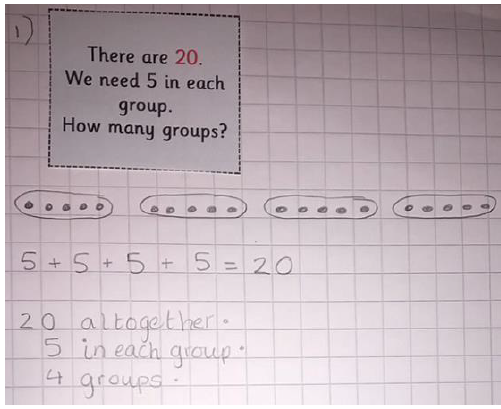 1)
There are 20.
We need 5 in each
group.
How many groups?
5 + 5 + 5 + 5 = 20
20 altogether.
5 in each group.
4 groups.